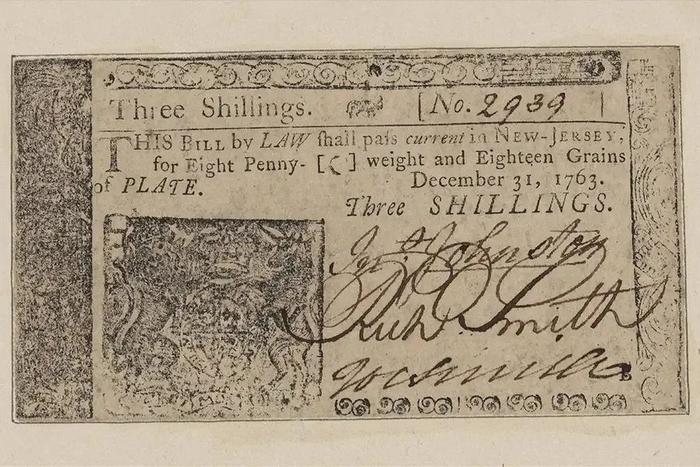 Three Shillings. [No. 2939]
THIS BILL by LAW ſhall paſs current in NEW-JERSEY,
for Eight Penny-[ ☾ ] weight and Eighteen Grains
of PLATE. December 31, 1763.
Three SHILLINGS.
Jno. Johnston
Rich Smith
B